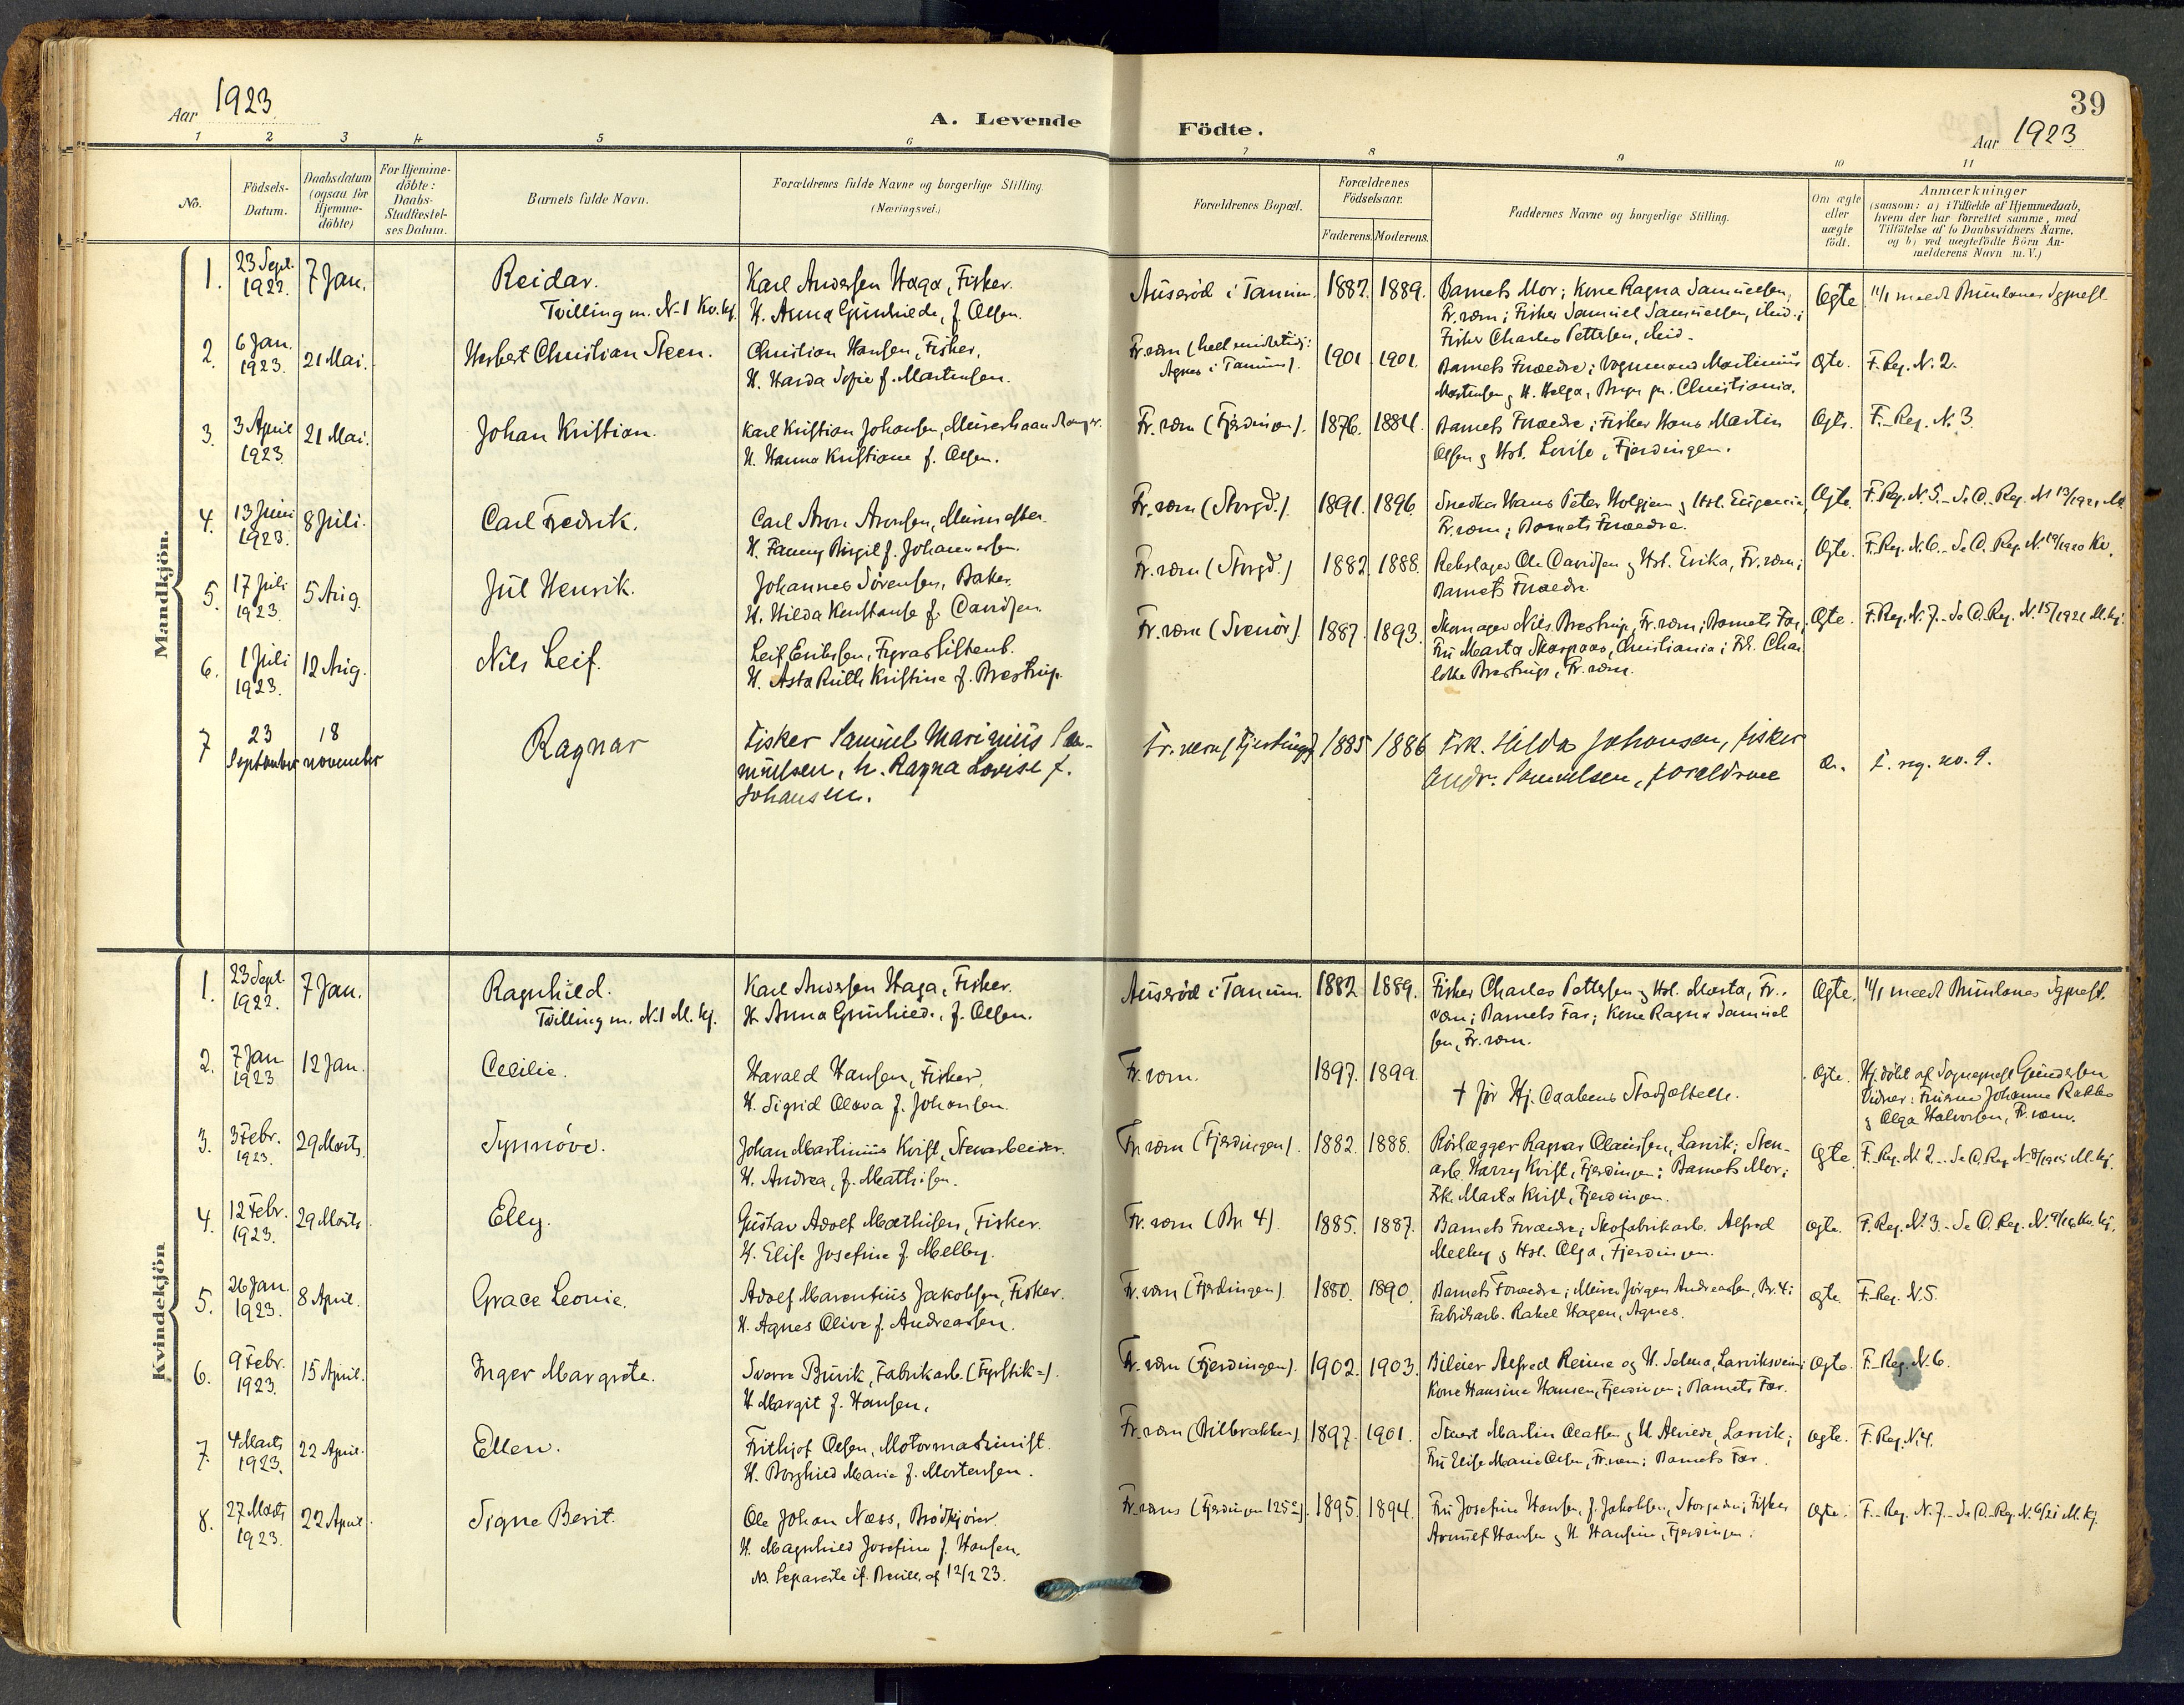 Aar 1923.
A. Levende
Födte.
39
Aar 1923
1 2 3 4 5 6 7 8 9 10 11
No.
Födsels-
Datum.
Daabsdatum
(ogsaa for
Hjemme-
döbte)
For Hjemme-
döbte:
Daabs-
Stadfæstel-
ses Datum.
Barnets fulde Navn.
Forældrenes fulde Navne og borgerlige Stilling.
(Næringsvei.)
Forældrenes Bopæl.
Forældrenes
Födselsaar.
Faderens. Moderens.
Faddernes Navne og borgerlige Stilling.
Om ægte
eller
uægte
födt.
Anmærkninger
(saasom: a) i Tilfælde af Hjemmedaab,
hvem der har forrettet samme, med
Tilföielse af to Daabsvidners Navne.
og b) ved uegtefödte Börn An-
melderens Navn m.V.)
Mandkjön.
1. 23 Sept. 1922. 7 Jan. Reidar.
Tvilling m. N. 1 Kv. kj.
Karl Andersen Haga, Fisker.
H. Anna Gunhilde, f. Olsen.
Auseröd i Tanum. 1882. 1889.
Barnets Mor; Kone Ragna Samuelsen,
Fr.værn; Fisker Samuel Samuelsen, ibid.;
Fisker Charles Pettersen, ibid.
Ægte 11/1 meldt Brunlanes Sgprest.
2. 6 Jan. 1923. 21 Mai. Herbert Christian Steen.
Christian Hansen, Fisker,
H. Harda Sofie f. Martinsen.
Fr.værn (
Agnes i Tanum).
1901. 1901.
Barnets Forældre; Vognmand Martinius
Martinsen & H. Helga, Christiania.
Ægte. F. Reg. N. 2.
3. 3 April 1923. 21 Mai. Johan Kristian.
Karl Kristian Johansen,
H. Hanna Kristiane f. Olsen.
Fr. værn (Fjerdingen). 1876. 1884.
Barnets Forældre; Fisker Hans Martin
Olsen & Hst. Lovise, Fjerdingen.
Ægte. F. Reg. N. 3.
4. 13 Juni 1923. 8 Juli. Carl Fredrik.
Carl Aron Aronsen,
H. Fanny Birgit f. Johannessen.
Fr. værn (Storgd.). 1891. 1896.
Snedker Hans Peter Holgjem & Hst. Eugenie
Fr.værn; Barnets Forældre.
Ægte. F. Reg. N. 5. - Se D. Reg. N. 13/1921 M.
5. 17 Juli 1923. 5 Aug. Jul Henrik.
Johannes Sörensen, Baker,
H. Hilda Konstanse f. Davidsen.
Fr. værn (Storgd.) 1882. 1888.
Rebslager Ole Davidsen & Hst. Erika, Fr. værn;
Barnets Forældre.
Ægte. F. Reg. N. 6. - Se D. Reg. N. 19/1920 Kv.
6. 1 Juli 1923. 12 Aug. Nils Leif.
Leif Eriksen, Fyrassistent.
H. Asta Ruth Kristine f. Brestrup.
Fr. værn (Svenör). 1887. 1893.
Skomager Nils Brestrup, Fr. værn; Barnets Far;
Fru Marta Skarpaas, Christiania; Frk. Char
lotte Brestrup, Fr. værn.
Ægte. F. Reg. N. 7. - Se D. Reg. N. 15/1921 M. kj.
7 23 September 18 november Ragnar
Fisker Samuel Marinius Sa-
muelsen, h. Ragna Lovise f.
Johansen.
Fr.værn (Fjerdingen) 1885 1886
Frk. Hilda Johansen, fisker
Andr. Samuelsen, foreldrene
æ. F. reg. no. 9.
Kvindekjön
1. 23 Sept. 1922. 7 Jan. Ragnhild.
Tvilling m. N. 1 M. kj.
Karl Andersen Haga, Fisker.
H. Anna Gunhilde, f. Olsen.
Auseröd i Tanum. 1882 1889.
Fisker Charles Pettersen & Hst. Marta, Fr.
værn; Barnets Far; Kone Ragna Samuel
sen, Fr. værn.
Ægte. 11/1 meldt Brunlanes Sgprest.
2. 7 Jan 1923 12 Jan. Cecilie.
Harald Hansen, Fisker,
H. Sigrid Olava f. Johansen.
Fr. værn. 1897. 1899.
† för Hj. Daabens Stadfæstelse.
Ægte. Hj. döbt af Sogneprest Gundersen
Vidner: Fruerne Johanne Bakke
& Olga Halvorsen, Fr. værn.
3. 3 Febr. 1923. 29 Marts. Synnöve.
Johan Martinius Kvist, Stenarbeider.
H. Andrea, f. Mathisen.
Fr. værn (Fjerdingen). 1882. 1888.
Rörlægger Ragnar Olaussen, Larvik; Sten-
arb. Harry Kvist, Fjerdingen; Barnets Mor;
Frk. Marta Kvist, Fjerdingen.
Ægte. F. Reg. N. 2. - Se D. Reg. M. kj.
4. 12 Febr. 1923. 29 Marts. Elly.
Gustav Adolf Mathisen, Fisker.
H. Elise Josefine f. Melby.
Fr. værn (Br. 4). 1885. 1887.
Barnets Forældre; Skofabrikarb. Alfred
Melby & Hst. Olga, Fjerdingen.
Ægte. F. Reg. N. 3. - Se D. Reg. N. 9/16 Kv. kj.
5. 26 Jan. 1923. 8 April. Grace Leonie.
Adolf Marentius Jakobsen, Fisker.
H. Agnes Olive f. Andreassen.
Fr. værn (Fjerdingen). 1880. 1890.
Barnets Forældre; Murer Jörgen Andreassen, Br. 4;
Fabrikarb. Rakel Hagen, Agnes.
Ægte. F. Reg. N. 5.
6. 9 Febr. 1923. 15 April. Inger Margrete.
Sverre Burvik, Fabrikarb. (Fyrstik-).
H. Margit f. Hansen.
Fr. værn (Fjerdingen). 1902. 1903.
Bileier Alfred Reime og H. Selma, Larviksveien;
Kone Hansine Hansen, Fjerdingen; Barnets Far.
Ægte. F. Reg. N. 6.
7. 4 Marts 1923. 22 April. Ellen.
Frithjof Olsen, Motormaskinist.
H. Borghild Marie f. Mortensen.
Fr. værn (Bilbrakken) 1897. 1901.
Stuert Martin Olaffen & H. Alvilde, Larvik;
Fru Elise Marie Olsen, Fr. værn; Barnets Far.
Ægte. F. Reg. N. 4.
8. 27 Marts 1923. 22 April. Signe Berit.
Ole Johan Næss, Brödkjörer.
H. Magnhild Josefine f. Hansen.
NB. Separerte if. Bevill. af 12/2 23.
Fr. værns (Fjerdingen 125 ). 1895. 1894.
Fru Josefine Hansen, f. Jakobsen, Storgaden; Fisker
Arnulf Hansen & H. Hansine, Fjerdingen.
Ægte. F. Reg. N. 7. - Se D. Reg. N. 6/21 M. kj.